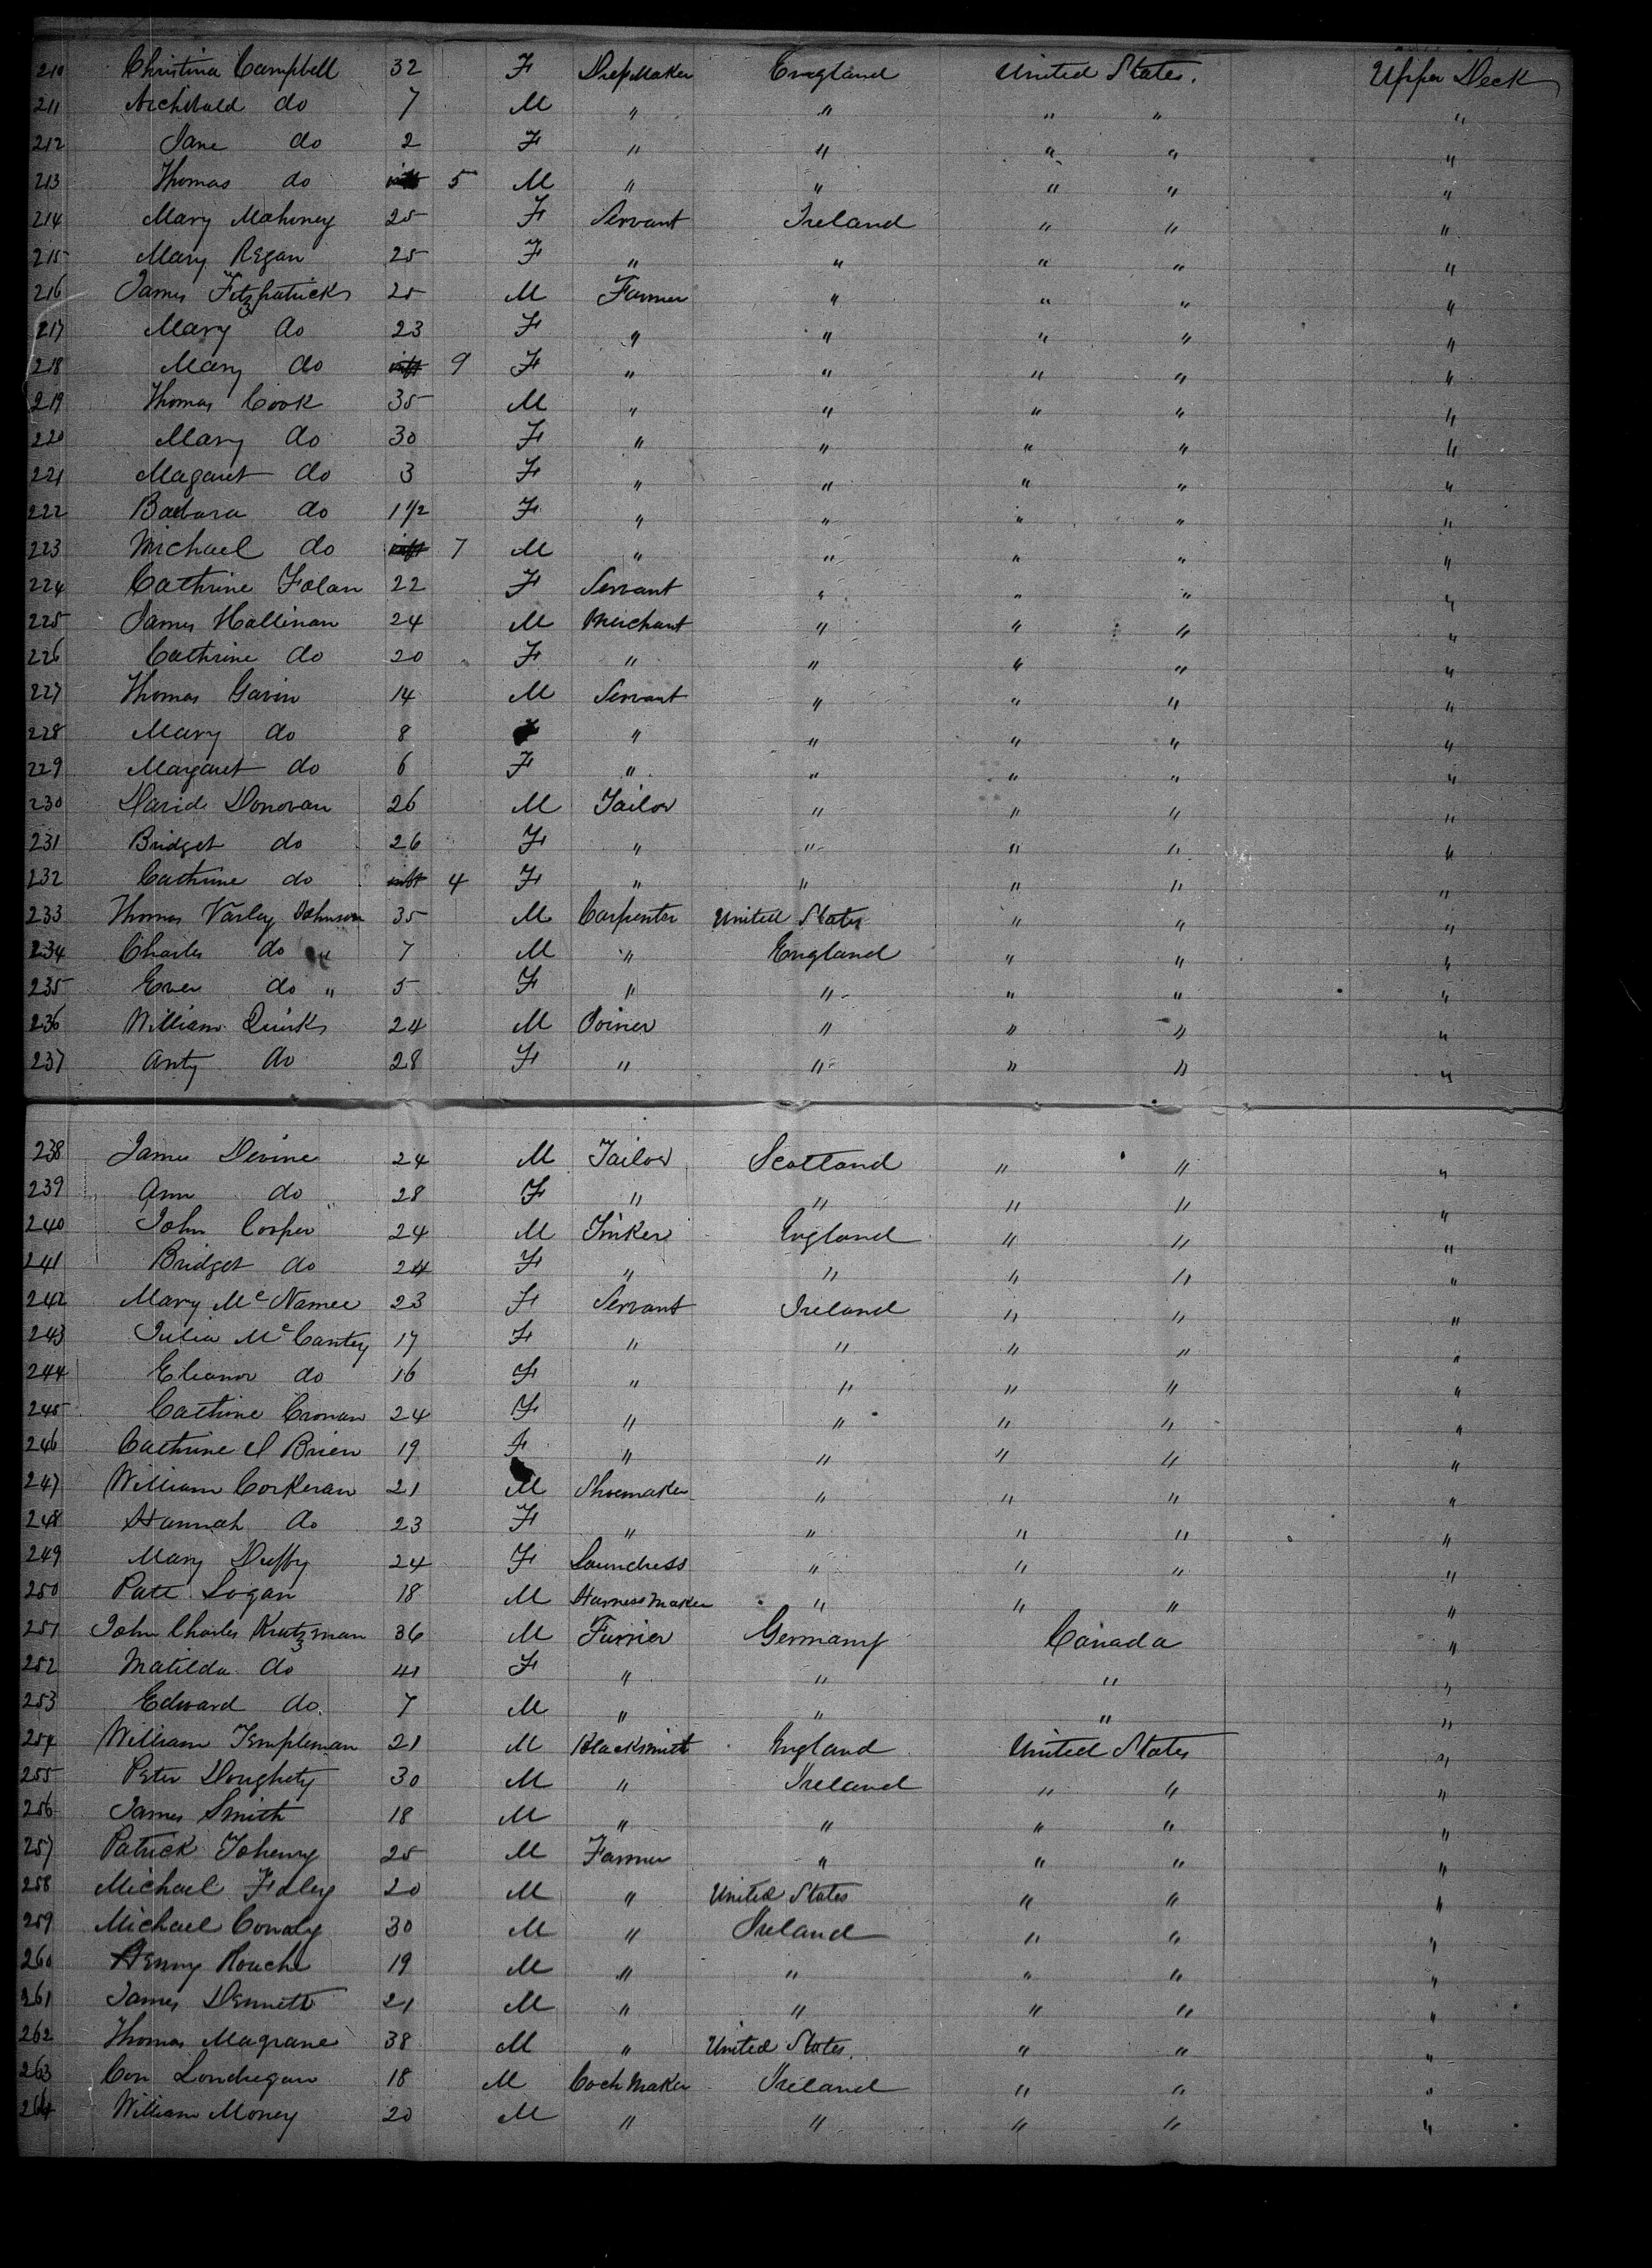 210 Christina Campbell 32 F DressMaker England United States. Upper Deck
211 Archibald do 7 M " " " " "
212 Jane do 2 F " " " " "
213 Thomas do inft 5 M " " " " "
214 Mary Mahoney 25 F Servant Ireland " " "
215 Mary Regan 25 F " " " " "
216 James Fitzpatrick 25 M Farmer " " " "
217 Mary do 23 F " " " " "
218 Mary do inft 9 F " " " " "
219 Thomas Cook 35 M " " " " "
220 Mary do 30 F " " " " "
221 Magaret do 3 F " " " " "
222 Barbara do 1 1/2 F " " " " "
223 Michael do inft 7 M " " " " "
224 Cathrine Folan 22 F Servant " " " "
225 James Hallinan 24 M Merchant " " " "
226 Cathrine do 20 F " " " " "
227 Thomas Gavin 14 M Servant " " " "
228 Mary do 8 F " " " " "
229 Margaret do 6 F " " " " "
230 David Donovan 26 M Tailor " " " "
231 Bridget do 26 F " " " " "
232 Cathrine do inft 4 F " " " " "
233 Thomas Varley Johnson 35 M Carpenter United States " " "
234 Charles do " 7 M " England " " "
235 Ever do " 5 F " " " " "
236 William Quirk 24 M Joiner " " " "
237 Anty do 28 F " " " " "
238 James Devine 24 M Tailor Scotland " " "
239 Ann do 28 F " " " " "
240 John Cooper 24 M Tinker England " " "
241 Bridget do 24 F " " " " "
242 Mary McNamee 23 F Servant Ireland " " "
243 Julia McCanty 17 F " " " " "
244 Eleanor do 16 F " " " " "
245 Cathrine Cronan 24 F " " " " "
246 Cathrine O Brien 19 F " " " " "
247 William Corkeran 21 M Shoemaker " " " "
248 Hannah do 23 F " " " " "
249 Mary Duffy 24 F Laundress " " " "
250 Patt Logan 18 M Harness Maker " " " "
251 John Charles Krutzman 36 M Furrier Germany Canada "
252 Matilda do 41 F " " " "
253 Edward do. 7 M " " " "
254 William Templeman 21 M Blacksmith England United States "
255 Peter Doughety 30 M " Ireland " " "
256 James Smith 18 M " " " " "
257 Patrick Toheny 25 M Farmer " " " "
258 Michael Foley 20 M " United States " " "
259 Michael Conoly 30 M " Ireland " " "
260 Henny Rouche 19 M " " " " "
261 James Dennett 21 M " " " " "
262 Thomas Magrane 38 M " United States. " " "
263 Con Londregan 18 M Coch Maker Ireland " " "
264 William Money 20 M " " " " "